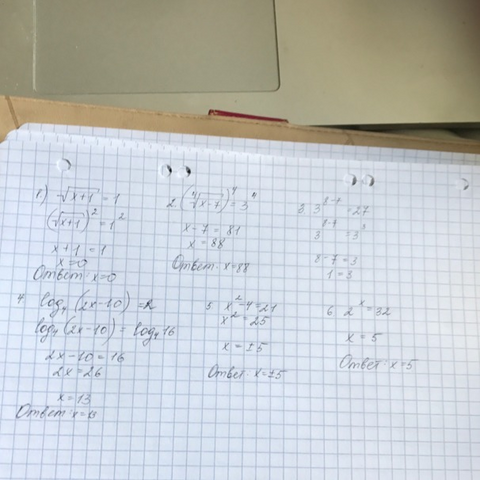 1) √(x+1) = 1
(√(x+1))² = 1²
x+1 = 1
x=0
Ответ: x=0
2. (⁴√(x-7))⁴ = 3⁴
x-7 = 81
x = 88
Ответ: x=88
3. 3⁸⁻⁷ = 27
3⁸⁻⁷ = 3³
8-7 = 3
1 = 3
4. log₄(2x-10) = 2
log₄(2x-10) = log₄16
2x-10 = 16
2x = 26
x = 13
Ответ: x=13
5. x²-4=21
x² = 25
x = ±5
Ответ: x=±5
6. 2ˣ = 32
x = 5
Ответ: x=5